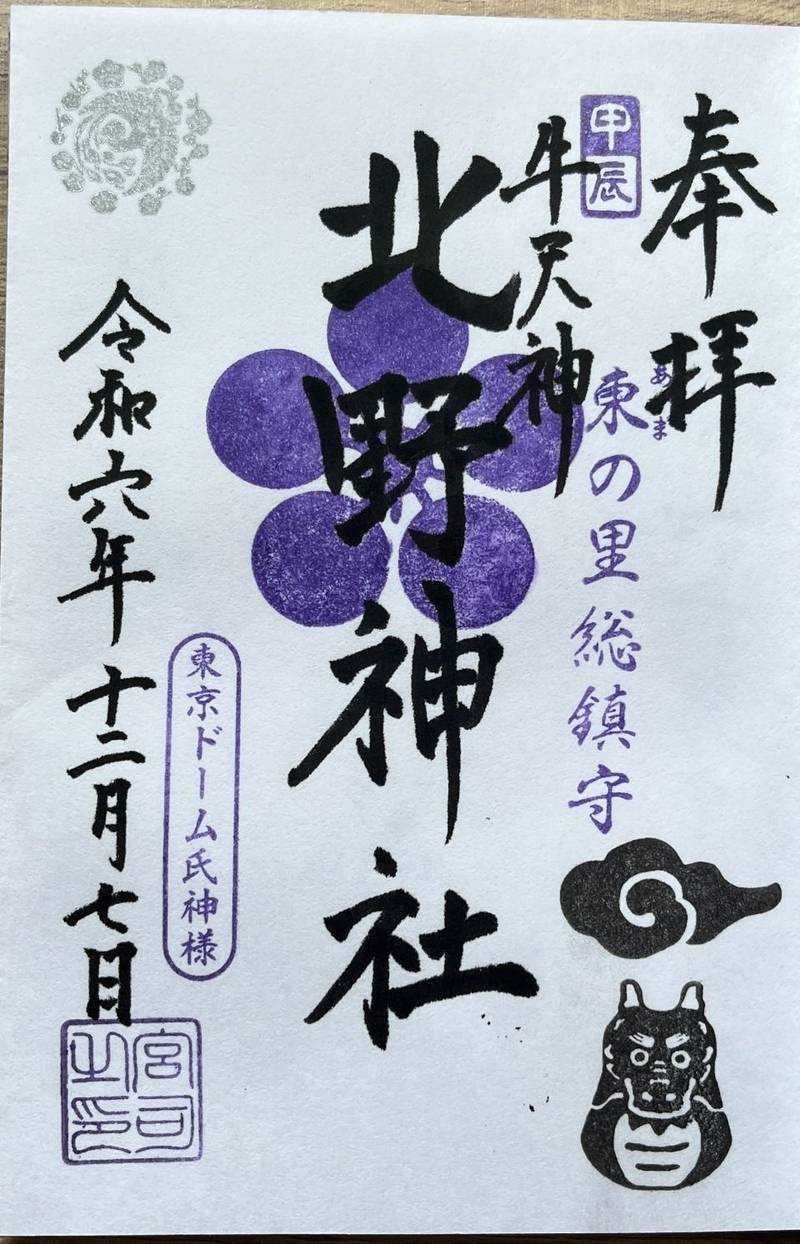 奉拝
甲辰
牛天神
東の里総鎮守
あま
北野神社
東京ドーム氏神様
令和六年十二月七日
宮司之印